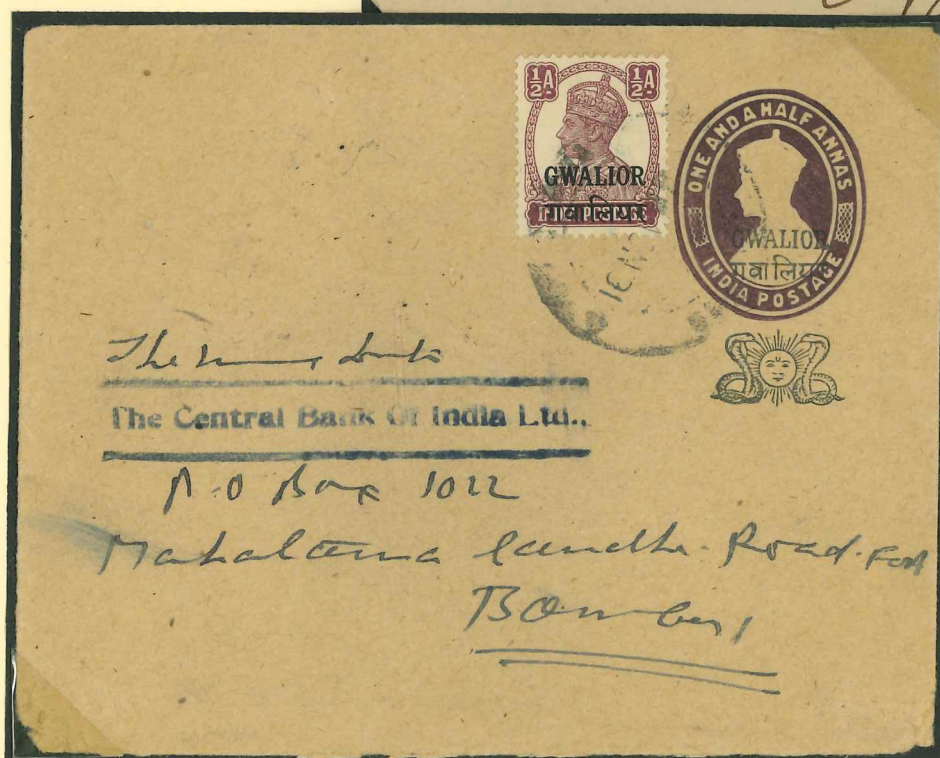 ½A ½A
GWALIOR
ग्वालियर
INDIA POSTAGE
ONE AND A HALF ANNAS
GWALIOR
ग्वालियर
INDIA POSTAGE
The
The Central Bank Of India Ltd.,
P.O Box 1022
Mahatama Gandhi Road Fort
Bombay